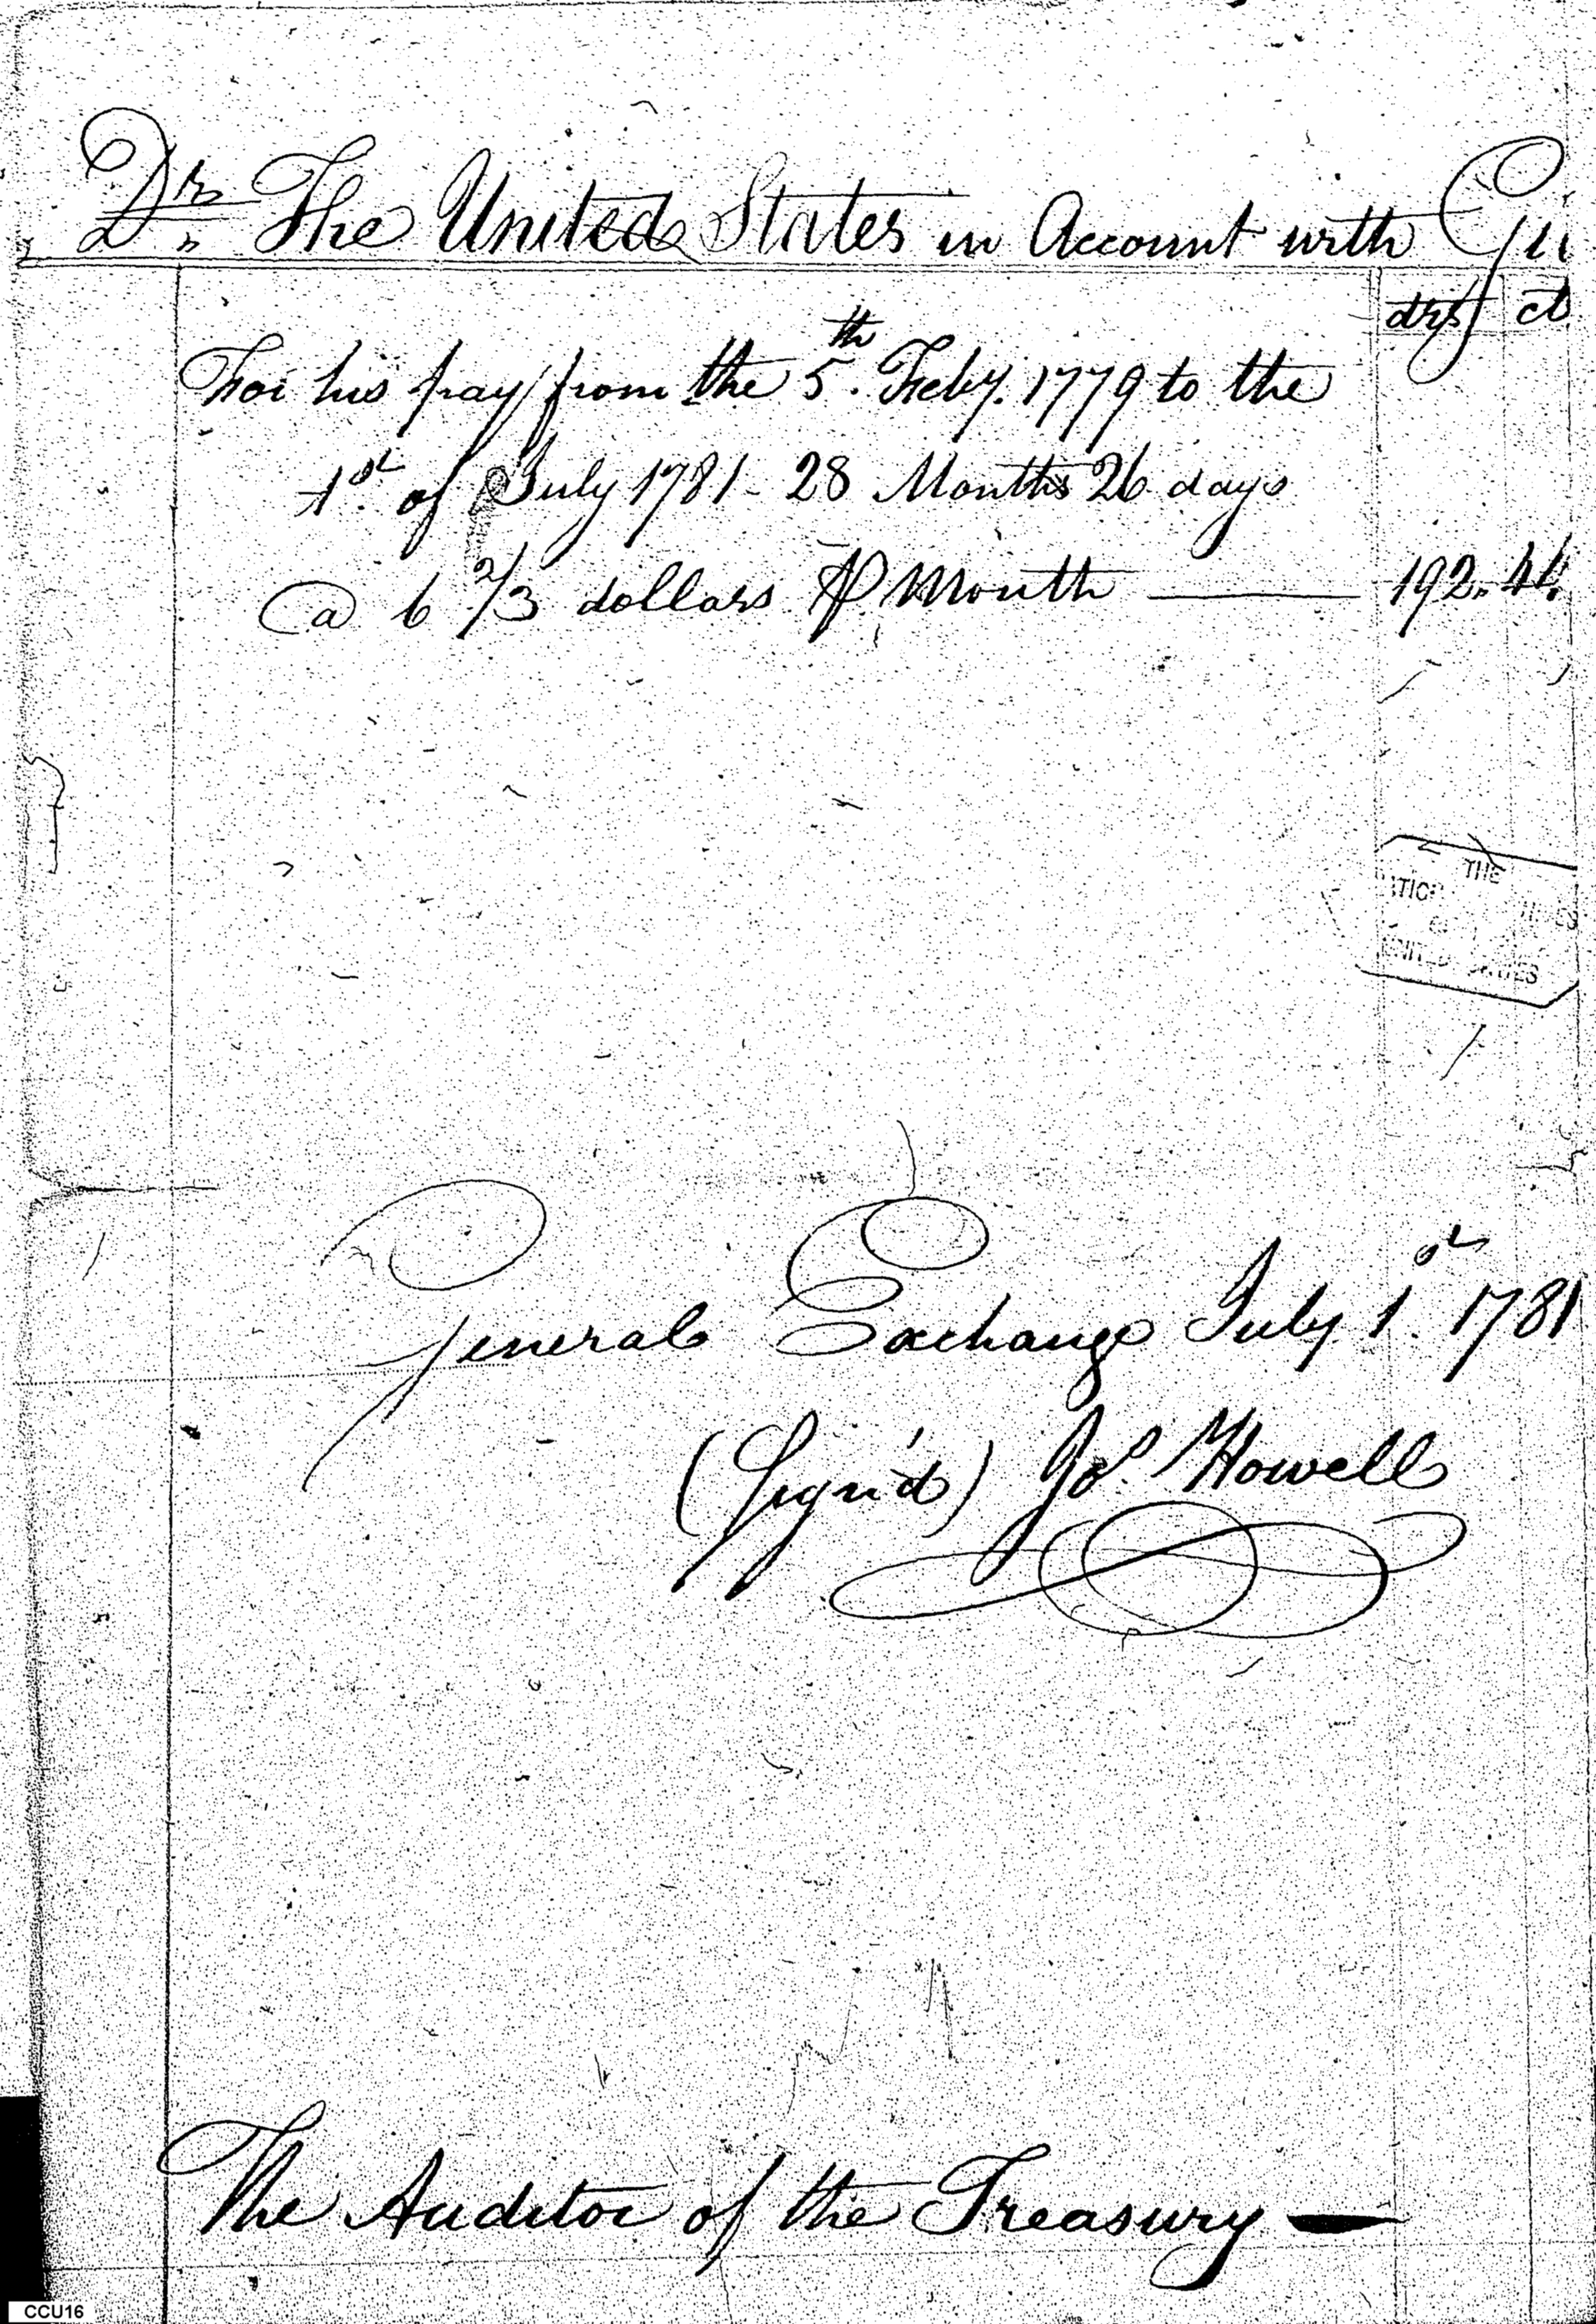 Dr. The United States in Account with Gui
dys ct
For his pay from the 5th. Feby. 1779 to the
1st. of July 1781 - 28 Months 26 days
@ 6 2/3 dollars ⅌ Month — 192. 44.
THE
UNITED STATES
General Exchange July 1st. 1781
(Sign'd) Jos. Howell
The Auditor of the Treasury —
CCU16